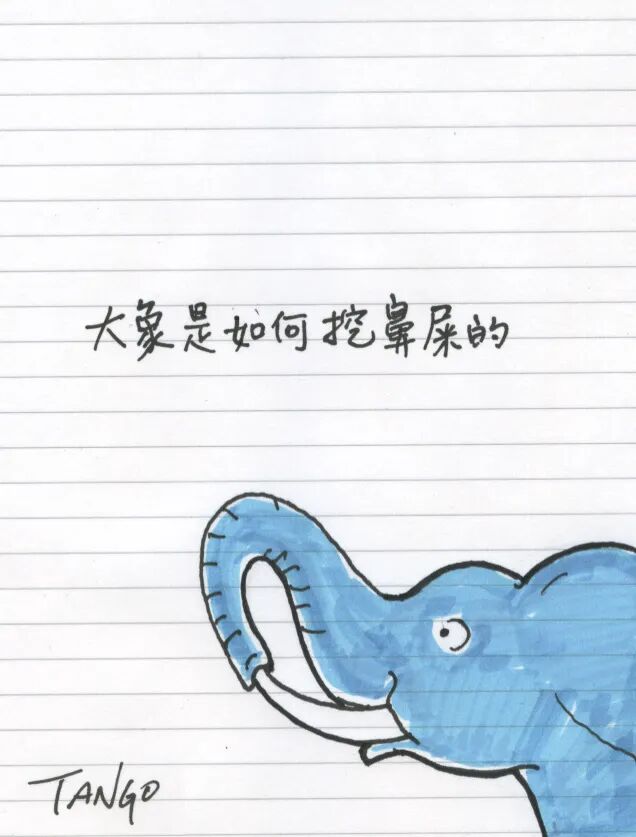 大象是如何挖鼻屎的
TANGO